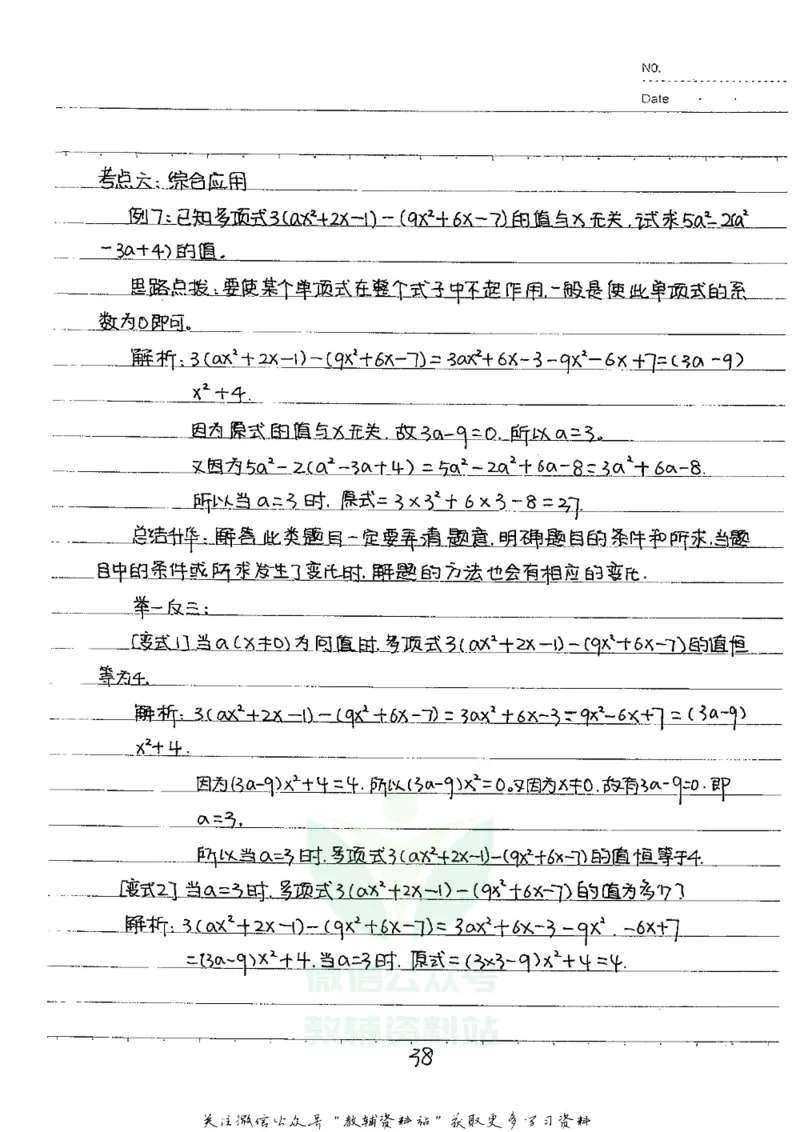 NO.
Date
考点六:综合应用
例7:已知多项式3(ax²+2x-1)-(9x²+6x-7)的值与x无关,试求5a²-2(a²
-3a+4)的值。
思路点拨:要使某个单项式在整个式子中不起作用,一般是使此单项式的系
数为0即可。
解析:3(ax²+2x-1)-(9x²+6x-7)=3ax²+6x-3-9x²-6x+7=(3a-9)
x²+4.
因为原式的值与x无关,故3a-9=0,所以a=3。
又因为5a²-2(a²-3a+4)=5a²-2a²+6a-8=3a²+6a-8.
所以当a=3时,原式=3×3²+6×3-8=27.
总结升华:解答此类题目一定要弄清题意,明确题目的条件和所求,当题
目中的条件或所求发生了变化时,解题的方法也会有相应的变化.
举一反三:
[变式1]当a(x≠0)为何值时,多项式3(ax²+2x-1)-(9x²+6x-7)的值恒
等为4.
解析:3(ax²+2x-1)-(9x²+6x-7)=3ax²+6x-3-9x²-6x+7=(3a-9)
x²+4.
因为(3a-9)x²+4=4,所以(3a-9)x²=0。又因为x≠0,故有3a-9=0.即
a=3,
所以当a=3时,多项式3(ax²+2x-1)-(9x²+6x-7)的值恒等于4.
[变式2]当a=3时,多项式3(ax²+2x-1)-(9x²+6x-7)的值为多少?
解析:3(ax²+2x-1)-(9x²+6x-7)=3ax²+6x-3-9x².-6x+7
=(3a-9)x²+4,当a=3时,原式=(3×3-9)x²+4=4.
微信公众号
教辅资料站
38
关注微信公众号"教辅资料站"获取更多学习资料